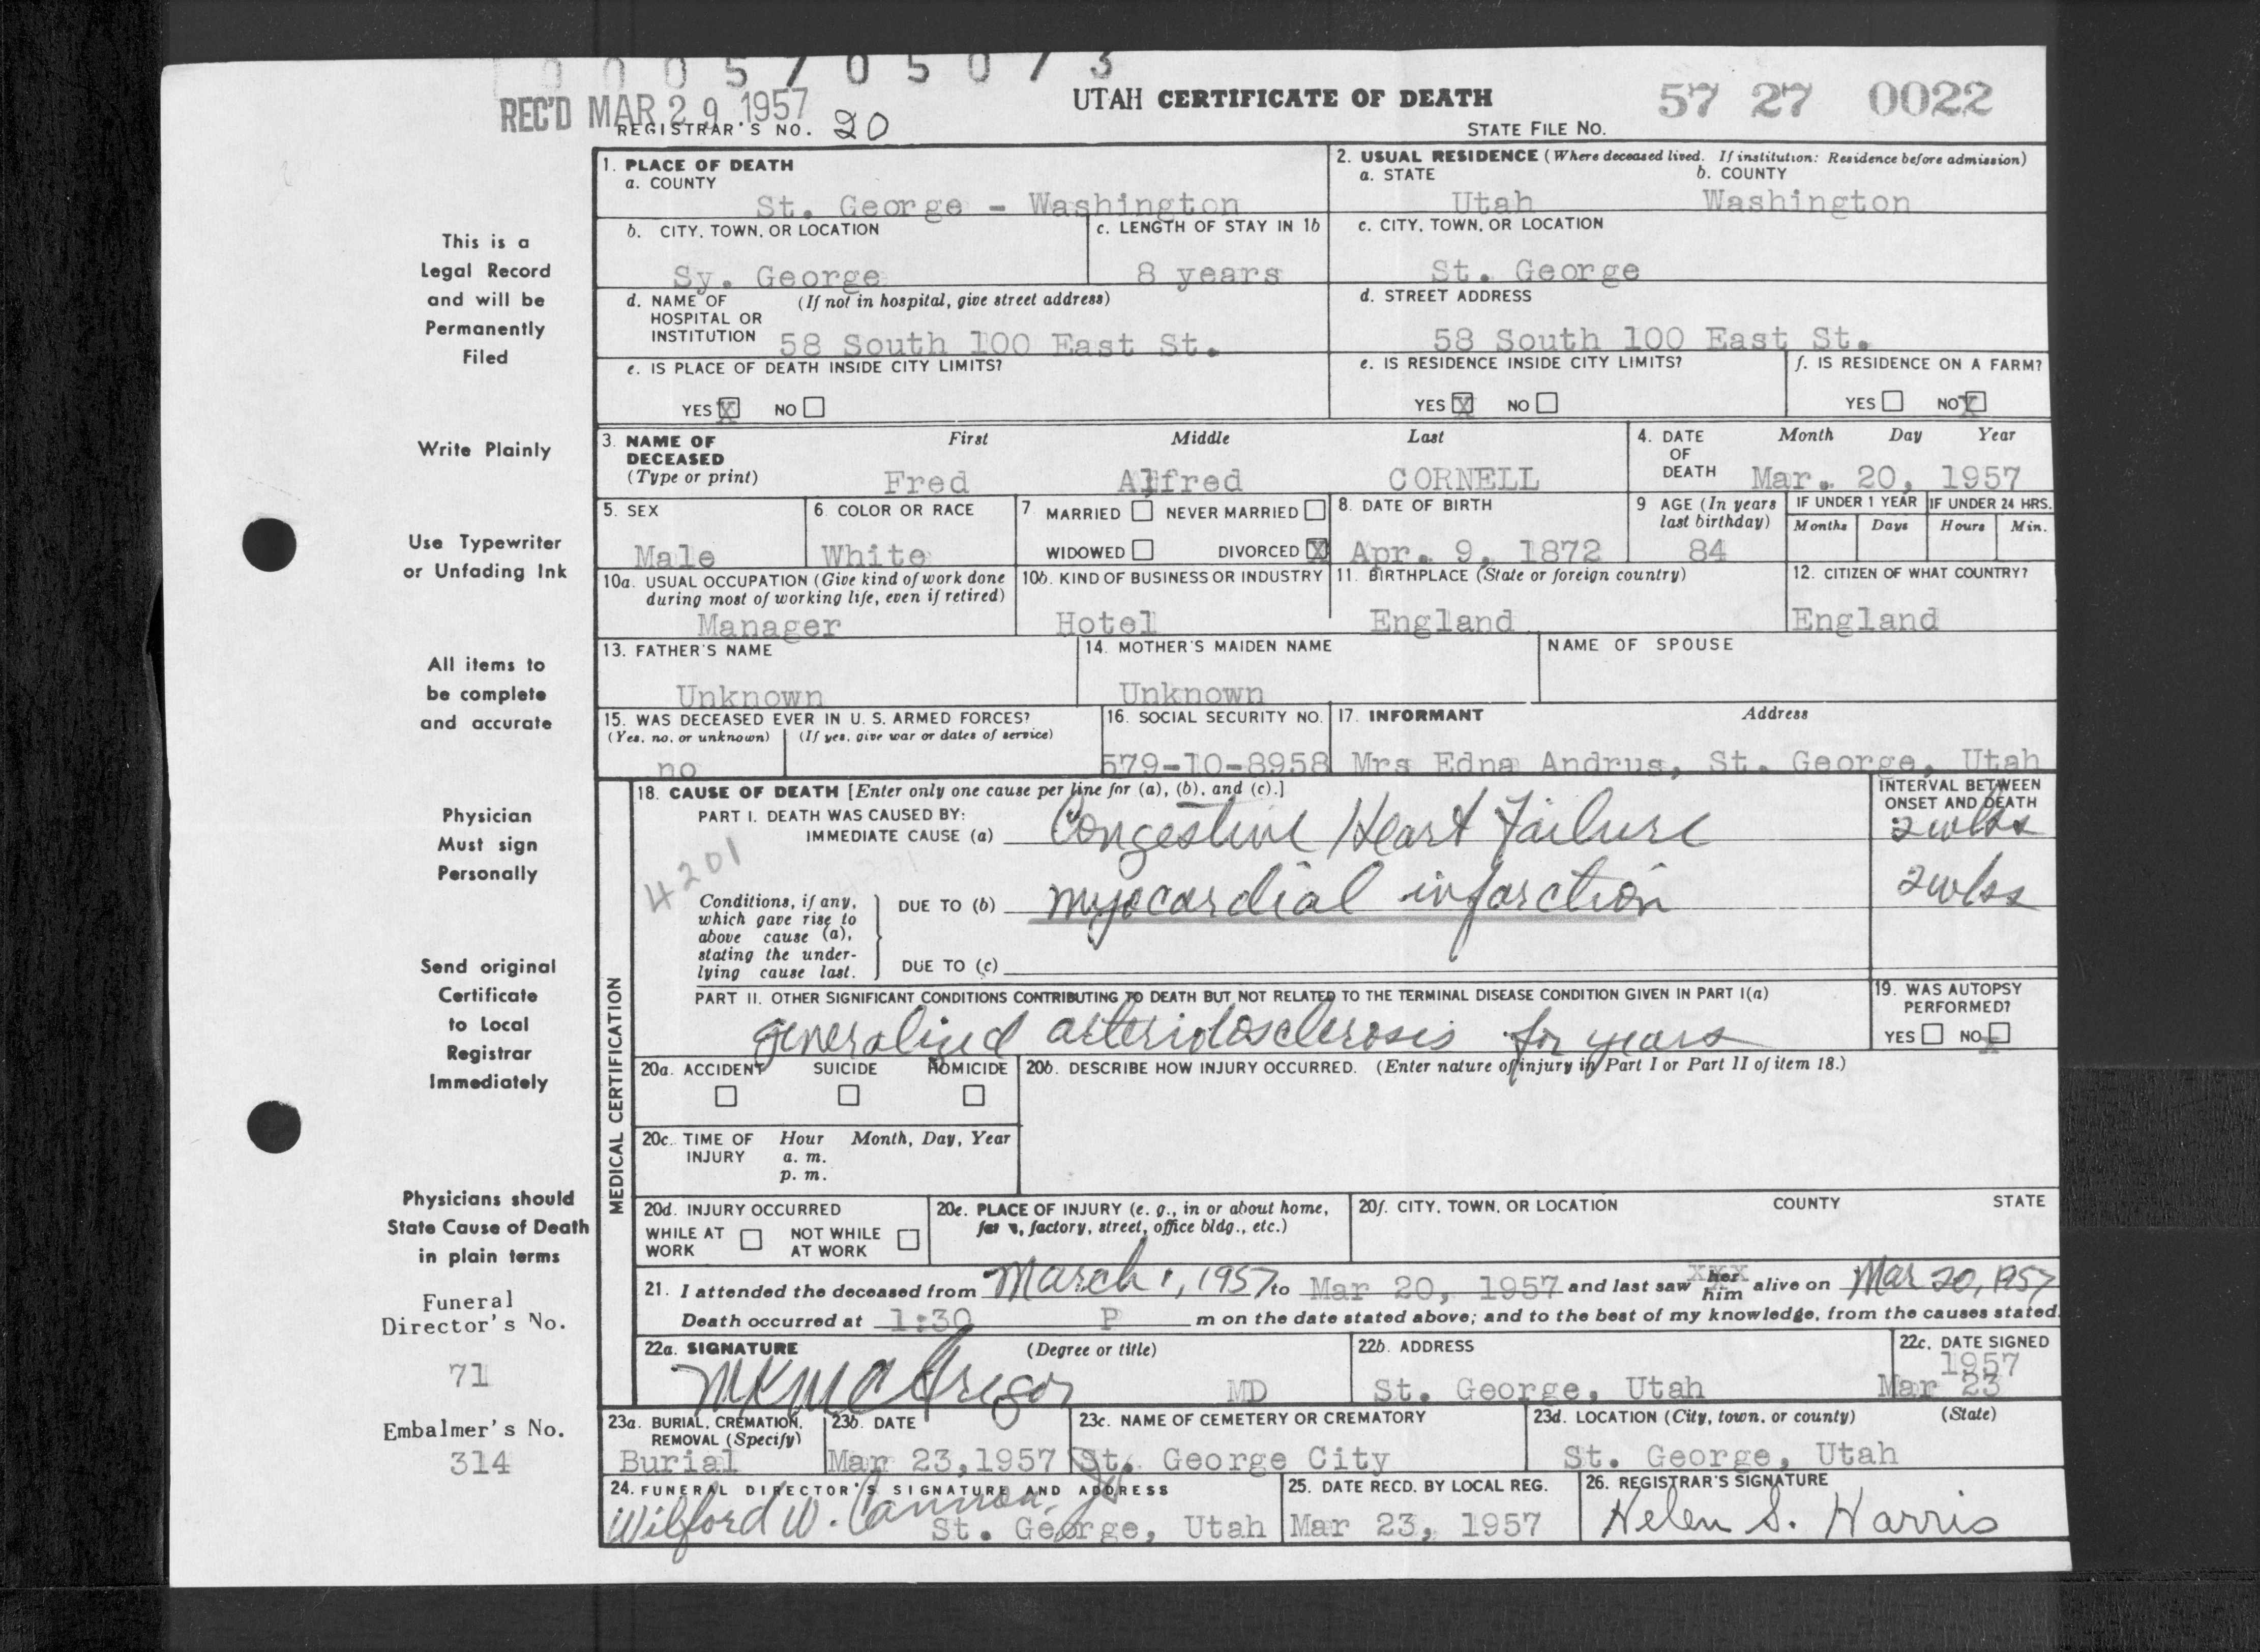 0 0 0 5 7 0 5 0 7 3
REC'D MAR 29 1957
UTAH CERTIFICATE OF DEATH
57 27 0022
REGISTRAR'S NO. 20
STATE FILE NO.
This is a
Legal Record
and will be
Permanently
Filed
Write Plainly
Use Typewriter
or Unfading Ink
All items to
be complete
and accurate
Physician
Must sign
Personally
Send original
Certificate
to Local
Registrar
Immediately
Physicians should
State Cause of Death
in plain terms
Funeral
Director's No.
71
Embalmer's No.
314
1. PLACE OF DEATH
a. COUNTY
St. George - Washington
2. USUAL RESIDENCE (Where deceased lived. If institution: Residence before admission)
a. STATE
Utah
b. COUNTY
Washington
b. CITY, TOWN, OR LOCATION
Sy. George
c. LENGTH OF STAY IN 1b
8 years
c. CITY, TOWN, OR LOCATION
St. George
d. NAME OF (If not in hospital, give street address)
HOSPITAL OR
INSTITUTION 58 South 100 East St.
d. STREET ADDRESS
58 South 100 East St.
e. IS PLACE OF DEATH INSIDE CITY LIMITS?
YES X NO
e. IS RESIDENCE INSIDE CITY LIMITS?
YES X NO
f. IS RESIDENCE ON A FARM?
YES NO X
3. NAME OF DECEASED
(Type or print)
First Middle Last
Fred Alfred CORNELL
4. DATE OF DEATH
Month Day Year
Mar. 20, 1957
5. SEX
Male
6. COLOR OR RACE
White
7 MARRIED NEVER MARRIED
WIDOWED DIVORCED X
8. DATE OF BIRTH
Apr. 9, 1872
9 AGE (In years
last birthday)
84
IF UNDER 1 YEAR
Months Days
IF UNDER 24 HRS.
Hours Min.
10a. USUAL OCCUPATION (Give kind of work done
during most of working life, even if retired)
Manager
10b. KIND OF BUSINESS OR INDUSTRY
Hotel
11. BIRTHPLACE (State or foreign country)
England
12. CITIZEN OF WHAT COUNTRY?
England
13. FATHER'S NAME
Unknown
14. MOTHER'S MAIDEN NAME
Unknown
NAME OF SPOUSE
15. WAS DECEASED EVER IN U. S. ARMED FORCES?
(Yes, no, or unknown) (If yes, give war or dates of service)
no
16. SOCIAL SECURITY NO.
579-10-8958
17. INFORMANT Address
Mrs Edna Andrus, St. George, Utah
MEDICAL CERTIFICATION
18. CAUSE OF DEATH [Enter only one cause per line for (a), (b), and (c).]
INTERVAL BETWEEN
ONSET AND DEATH
PART I. DEATH WAS CAUSED BY:
IMMEDIATE CAUSE (a) Congestive Heart Failure 2 wks
4201
Conditions, if any,
which gave rise to
above cause (a),
stating the under-
lying cause last.
DUE TO (b) myocardial infarction 2 wks
DUE TO (c)
PART II. OTHER SIGNIFICANT CONDITIONS CONTRIBUTING TO DEATH BUT NOT RELATED TO THE TERMINAL DISEASE CONDITION GIVEN IN PART I(a)
generalized arteriolosclerosis for years
19. WAS AUTOPSY
PERFORMED?
YES NO X
20a. ACCIDENT SUICIDE HOMICIDE
20b. DESCRIBE HOW INJURY OCCURRED. (Enter nature of injury in Part I or Part II of item 18.)
20c. TIME OF INJURY
Hour Month, Day, Year
a. m.
p. m.
20d. INJURY OCCURRED
WHILE AT WORK NOT WHILE AT WORK
20e. PLACE OF INJURY (e. g., in or about home,
farm, factory, street, office bldg., etc.)
20f. CITY, TOWN, OR LOCATION COUNTY STATE
21. I attended the deceased from March 1, 1957 to Mar 20, 1957 and last saw her XXX him alive on Mar 20, 1957
Death occurred at 1:30 P m on the date stated above; and to the best of my knowledge, from the causes stated.
22a. SIGNATURE (Degree or title)
MK McGregor MD
22b. ADDRESS
St. George, Utah
22c. DATE SIGNED
1957
Mar 23
23a. BURIAL, CREMATION,
REMOVAL (Specify)
Burial
23b. DATE
Mar 23,1957
23c. NAME OF CEMETERY OR CREMATORY
St. George City
23d. LOCATION (City, town, or county) (State)
St. George, Utah
24. FUNERAL DIRECTOR'S SIGNATURE AND ADDRESS
Wilford W. Cannon, Jr
St. George, Utah
25. DATE RECD. BY LOCAL REG.
Mar 23, 1957
26. REGISTRAR'S SIGNATURE
Helen S. Harris